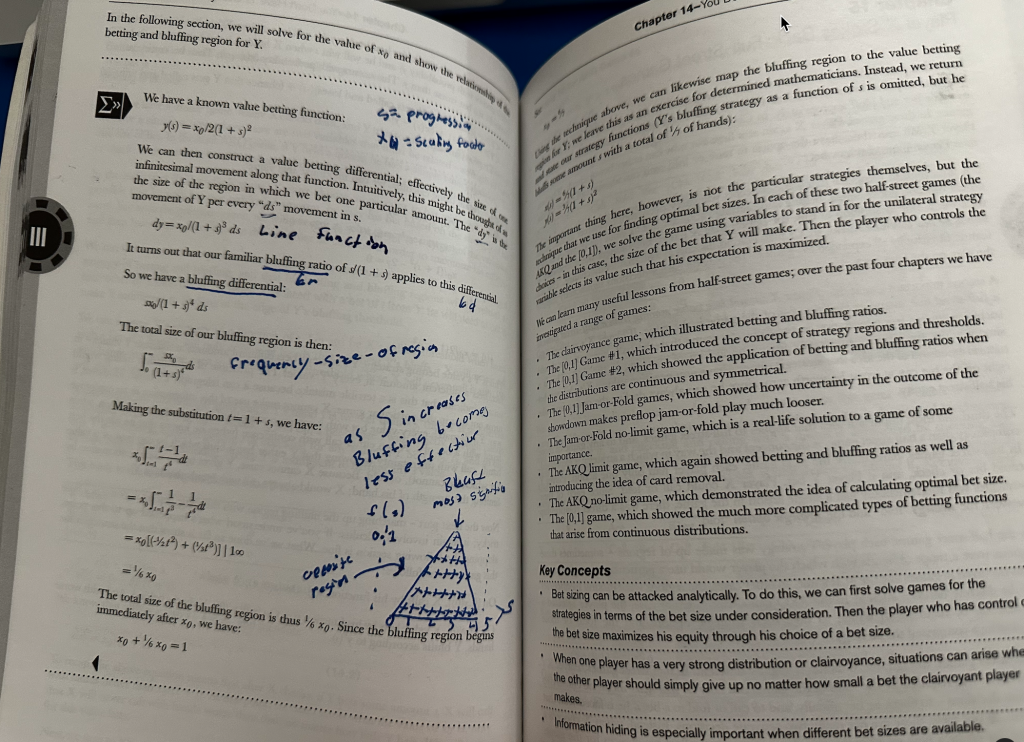 In the following section, we will solve for the value of x₀ and show the relationship of the
betting and bluffing region for Y.
Σ»
We have a known value betting function:
y(s) = x₀/2(1 + s)²
s = progression
x₀ = scaling factor
We can then construct a value betting differential; effectively the size of one
infinitesimal movement along that function. Intuitively, this might be thought of as
the size of the region in which we bet one particular amount. The "dy" is the
movement of Y per every "ds" movement in s.
dy = x₀/(1 + s)³ ds
Line Function
It turns out that our familiar bluffing ratio of s/(1 + s) applies to this differential.
br
So we have a bluffing differential:
bd
sx₀/(1 + s)⁴ ds
The total size of our bluffing region is then:
∫₀^∞ sx₀/(1 + s)⁴ ds
frequency-size-of region
Making the substitution t = 1 + s, we have:
x₀∫ₜ₌₁^∞ (t−1)/t⁴ dt
= x₀∫ₜ₌₁^∞ 1/t³ − 1/t⁴ dt
= x₀[(-½t²) + (⅓t³)] | 1∞
= ⅙ x₀
as S increases
Bluffing becomes
less effective
f(s)
Bluff
most
region
0 1 2 3 4 5 > S
The total size of the bluffing region is thus ⅙ x₀. Since the bluffing region begins
immediately after x₀, we have:
x₀ + ⅙ x₀ = 1
III
Chapter 14–You
So
x₀ = 6/7
Using the technique above, we can likewise map the bluffing region to the value betting
region for Y; we leave this as an exercise for determined mathematicians. Instead, we return
and state our strategy functions (Y's bluffing strategy as a function of s is omitted, but he
bluffs some amount s with a total of 1/7 of hands):
The important thing here, however, is not the particular strategies themselves, but the
technique that we use for finding optimal bet sizes. In each of these two half-street games (the
AKQ and the [0,1]), we solve the game using variables to stand in for the unilateral strategy
choices – in this case, the size of the bet that Y will make. Then the player who controls the
variable selects its value such that his expectation is maximized.
We can learn many useful lessons from half-street games; over the past four chapters we have
investigated a range of games:
• The clairvoyance game, which illustrated betting and bluffing ratios.
• The [0,1] Game #1, which introduced the concept of strategy regions and thresholds.
• The [0,1] Game #2, which showed the application of betting and bluffing ratios when
the distributions are continuous and symmetrical.
• The [0,1] Jam-or-Fold games, which showed how uncertainty in the outcome of the
showdown makes preflop jam-or-fold play much looser.
• The Jam-or-Fold no-limit game, which is a real-life solution to a game of some
importance.
• The AKQ limit game, which again showed betting and bluffing ratios as well as
introducing the idea of card removal.
• The AKQ no-limit game, which demonstrated the idea of calculating optimal bet size.
• The [0,1] game, which showed the much more complicated types of betting functions
that arise from continuous distributions.
Key Concepts
• Bet sizing can be attacked analytically. To do this, we can first solve games for the
strategies in terms of the bet size under consideration. Then the player who has control
the bet size maximizes his equity through his choice of a bet size.
• When one player has a very strong distribution or clairvoyance, situations can arise whe
the other player should simply give up no matter how small a bet the clairvoyant player
makes.
• Information hiding is especially important when different bet sizes are available.